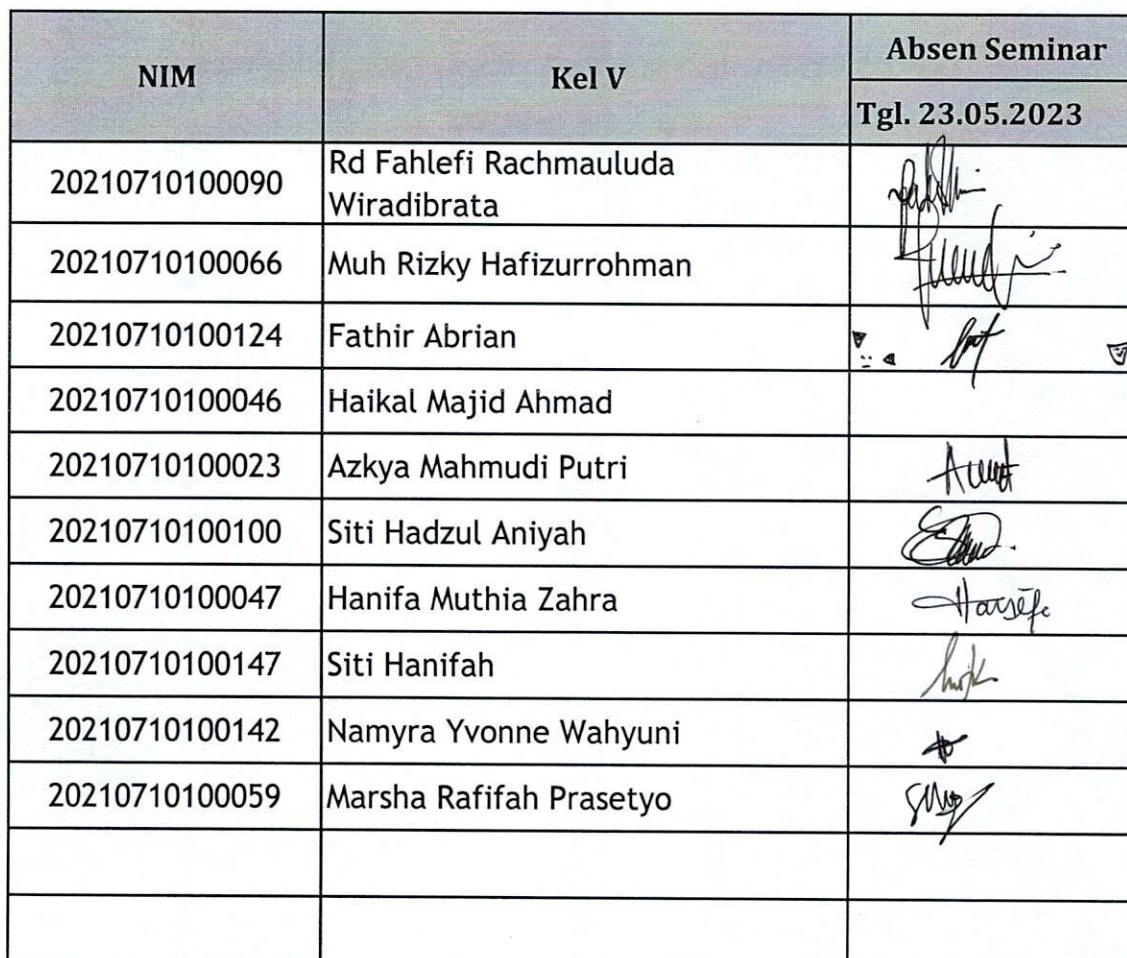 NIM
Kel V
Absen Seminar
Tgl. 23.05.2023
20210710100090 Rd Fahlefi Rachmauluda
Wiradibrata
20210710100066 Muh Rizky Hafizurrohman
20210710100124 Fathir Abrian
20210710100046 Haikal Majid Ahmad
20210710100023 Azkya Mahmudi Putri
20210710100100 Siti Hadzul Aniyah
20210710100047 Hanifa Muthia Zahra
20210710100147 Siti Hanifah
20210710100142 Namyra Yvonne Wahyuni
20210710100059 Marsha Rafifah Prasetyo